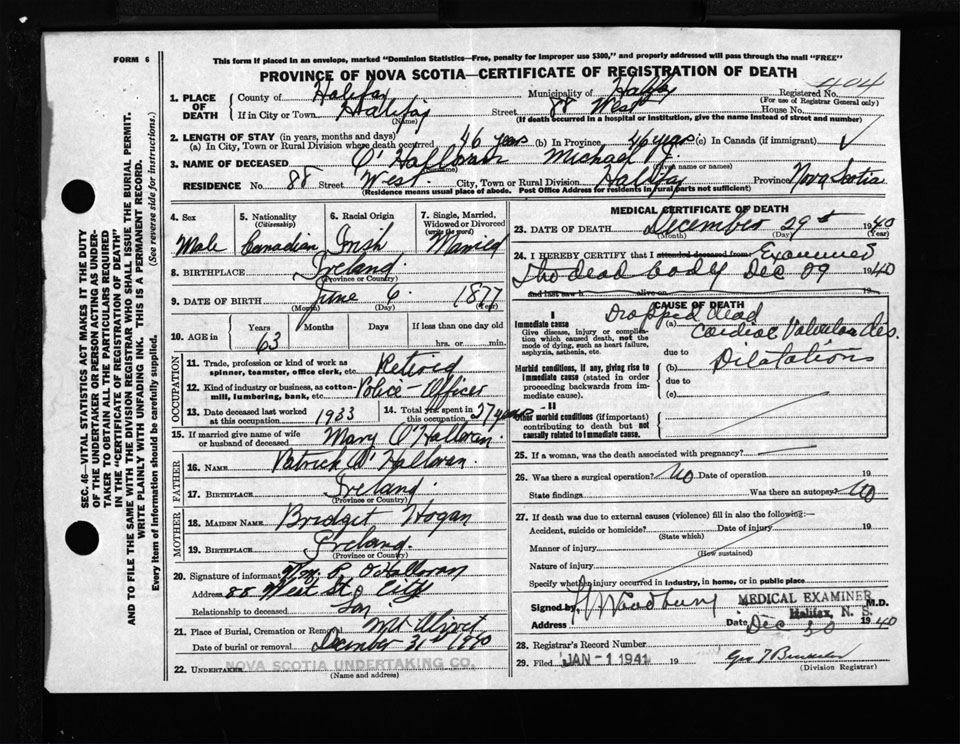 FORM 6
This form if placed in an envelope, marked "Dominion Statistics—Free, penalty for improper use $300," and properly addressed will pass through the mail "FREE"
PROVINCE OF NOVA SCOTIA—CERTIFICATE OF REGISTRATION OF DEATH
SEC. 46—VITAL STATISTICS ACT MAKES IT THE DUTY
OF THE UNDERTAKER OR PERSON ACTING AS UNDER-
TAKER TO OBTAIN ALL THE PARTICULARS REQUIRED
IN THE "CERTIFICATE OF REGISTRATION OF DEATH"
AND TO FILE THE SAME WITH THE DIVISION REGISTRAR WHO SHALL ISSUE THE BURIAL PERMIT.
WRITE PLAINLY WITH UNFADING INK. THIS IS A PERMANENT RECORD.
Every item of Information should be carefully supplied. (See reverse side for instructions.)
1. PLACE OF DEATH
County of Halifax Municipality of Registered No. 404
(For use of Registrar General only)
If in City or Town Halifax Street 88 West House No.
(Name) (If death occurred in a hospital or institution, give the name instead of street and number)
2. LENGTH OF STAY (in years, months and days)
(a) In City, Town or Rural Division where death occurred 46 years (b) In Province 46 years (c) In Canada (if immigrant) ✓
3. NAME OF DECEASED O'Halloran Michael J.
(Surname) (Given name or names)
RESIDENCE No. 88 Street West City, Town or Rural Division Halifax Province Nova Scotia
(Residence means usual place of abode. Post Office Address for residents in rural parts not sufficient)
4. Sex Male
5. Nationality (Citizenship) Canadian
6. Racial Origin Irish
7. Single, Married, Widowed or Divorced (write the word) Married
8. BIRTHPLACE Ireland
(Province or Country)
9. DATE OF BIRTH June 6 1877
(Month) (Day) (Year)
10. AGE in Years 63 Months Days If less than one day old
hrs. or min.
OCCUPATION
11. Trade, profession or kind of work as spinner, teamster, office clerk, etc. Retired
12. Kind of industry or business, as cotton-mill, lumbering, bank, etc. Police-Officer
13. Date deceased last worked at this occupation 1933
14. Total yrs. spent in this occupation 27 years
15. If married give name of wife or husband of deceased Mary O'Halloran
FATHER
16. NAME Patrick O'Halloran.
17. BIRTHPLACE Ireland
(Province or Country)
MOTHER
18. MAIDEN NAME Bridget Hogan
19. BIRTHPLACE Ireland.
(Province or Country)
20. Signature of informant Wm. P. O'Halloran
Address 88 West St City
Relationship to deceased Son
21. Place of Burial, Cremation or Removal Mt. Olivet
Date of burial or removal December 31st 1940
22. UNDERTAKER NOVA SCOTIA UNDERTAKING CO.
(Name and address)
MEDICAL CERTIFICATE OF DEATH
23. DATE OF DEATH December 29th 1940
(Month) (Day) (Year)
24. I HEREBY CERTIFY that I attended deceased from Examined
the dead body Dec 29 1940
and last saw h alive on
CAUSE OF DEATH
I
Immediate cause
Give disease, injury or complication which caused death, not the mode of dying, such as heart failure, asphyxia, asthenia, etc.
Dropped dead
(a) Cardiac Valvular des.
due to
Morbid conditions, if any, giving rise to immediate cause (stated in order proceeding backwards from immediate cause).
(b) Dilatations
due to
(c)
II
Other morbid conditions (if important) contributing to death but not causally related to immediate cause.
25. If a woman, was the death associated with pregnancy?
26. Was there a surgical operation? No Date of operation 19
State findings Was there an autopsy? No
27. If death was due to external causes (violence) fill in also the following:—
Accident, suicide or homicide? Date of injury 19
(State which)
Manner of injury
(How sustained)
Nature of injury
Specify whether injury occurred in industry, in home, or in public place
Signed by Woodbury MEDICAL EXAMINER M.D.
Address Halifax, N. S.
Date Dec 30 1940
28. Registrar's Record Number
29. Filed JAN -1 1941 19
(Division Registrar)